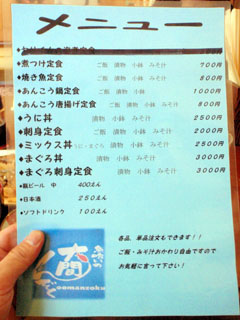 メニュー
◆煮つけ定食 ご飯 漬物 小鉢 みそ汁 700円
◆焼き魚定食 ご飯 漬物 小鉢 みそ汁 800円
◆あんこう鍋定食 ご飯 漬物 小鉢 1000円
◆あんこう唐揚げ定食 ご飯 漬物 小鉢 みそ汁 800円
◆うに丼 漬物 小鉢 みそ汁 2500円
◆刺身定食 ご飯 漬物 小鉢 みそ汁 2500円
◆ミックス丼 うに・まぐろ 漬物 小鉢 みそ汁 2500円
◆まぐろ丼 漬物 小鉢 みそ汁 3000円
◆まぐろ刺身定食 ご飯 漬物 小鉢 みそ汁 3000円
◆瓶ビール 中 400えん
◆日本酒 250えん
◆ソフトドリンク 100えん
各品、単品注文もできます!!
ご飯・みそ汁おかわり自由ですので
お気軽に言って下さい!
oomanzoku